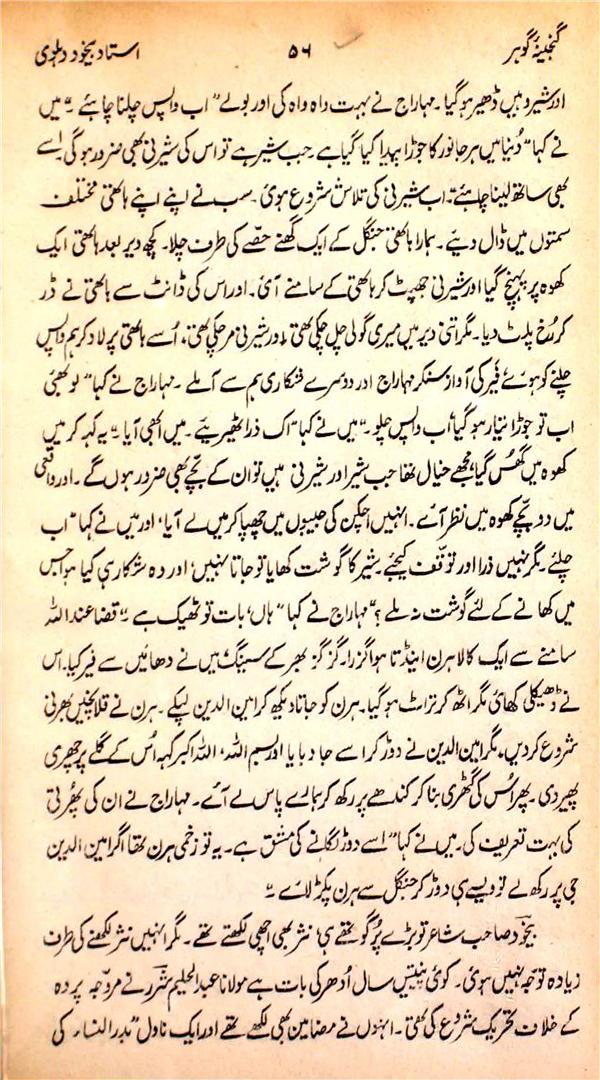 گنجینۂ گوہر ۵۶ استاد بیخود دہلوی
اور شیر وہیں ڈھیر ہو گیا۔ مہاراج نے بہت واہ واہ کی اور بولے "اب واپس چلنا چاہئے۔" میں
نے کہا "دُنیا میں ہر جانور کا جوڑا پیدا کیا گیا ہے۔ جب شیر ہے تو اس کی شیرنی بھی ضرور ہوگی۔ اسے
بھی ساتھ لینا چاہئے"۔ اب شیرنی کی تلاش شروع ہوئی۔ سب نے اپنے اپنے ہاتھی مختلف
سمتوں میں ڈال دیئے۔ ہمارا ہاتھی جنگل کے ایک گھنے حصّے کی طرف چلا۔ کچھ دیر بعد ہاتھی ایک
کھوہ پر پہنچ گیا اور شیرنی جھپٹ کر ہاتھی کے سامنے آئی۔ اور اس کی ڈانٹ سے ہاتھی نے ڈر
کر رُخ پلٹ دیا۔ مگر اتنی دیر میں میری گولی چل چکی تھی، اور شیرنی مر چکی تھی، اُسے ہاتھی پر لاد کر ہم واپس
چلنے کو ہوئے فیر کی آواز سنکر مہاراج اور دوسرے شکاری ہم سے آملے۔ مہاراج نے کہا "لو بھئی
اب تو جوڑا تیار ہو گیا، اب واپس چلو۔" میں نے کہا "اک ذرا ٹھیریئے۔ میں ابھی آیا۔" یہ کہہ کر میں
کھوہ میں گھُس گیا، مجھے خیال تھا جب شیر اور شیرنی ہیں تو ان کے بچّے بھی ضرور ہوں گے۔ اور واقعی
میں دو بچّے کھوہ میں نظر آئے۔ انہیں اچکن کی جیبوں میں چھپا کر میں لے آیا، اور میں نے کہا "اب
چلئے۔ مگر نہیں ذرا اور توقّف کیجئے۔ شیر کا گوشت کھایا تو جاتا نہیں، اور وہ شکار ہی کیا ہوا جس
میں کھانے کے لئے گوشت نہ ملے؟" مہاراج نے کہا "ہاں، بات تو ٹھیک ہے۔" قضا عند اللہ
سامنے سے ایک کالا ہرن اینڈتا ہوا گزرا۔ گز گز بھر کے سینگ، میں نے دھائیں سے فیر کیا۔ اس
نے ڈھیکلی کھائی مگر اٹھ کر تراٹ ہو گیا۔ ہرن کو جاتا دیکھ کر امین الدین لپکے۔ ہرن نے قلانچیں بھرنی
شروع کردیں، مگر امین الدین نے دوڑ کر اسے جا دبایا اور بسم اللہ، اللہ اکبر کہہ اُس کے گلے پر چھری
پھیر دی۔ پھر اُس کی گٹھری بنا کر کندھے پر رکھ کر ہمارے پاس لے آئے۔ مہاراج نے ان کی پھرتی
کی بہت تعریف کی۔ میں نے کہا "اسے دوڑ لگانے کی مشق ہے۔ یہ تو زخمی ہرن تھا اگر امین الدین
جی پر رکھ لے تو ویسے ہی دوڑ کر جنگل سے ہرن پکڑ لائے۔"
بیخود صاحب شاعر تو بڑے پُرگو تھے ہی، نثر بھی اچھی لکھتے تھے۔ مگر انہیں نثر لکھنے کی طرف
زیادہ توجّہ نہیں ہوئی۔ کوئی پینتیس سال اُدھر کی بات ہے مولانا عبدالحلیم شرر نے مروّجہ پردہ
کے خلاف تحریک شروع کی تھی۔ انہوں نے مضامین بھی لکھے تھے اور ایک ناول "بدر النساء کی